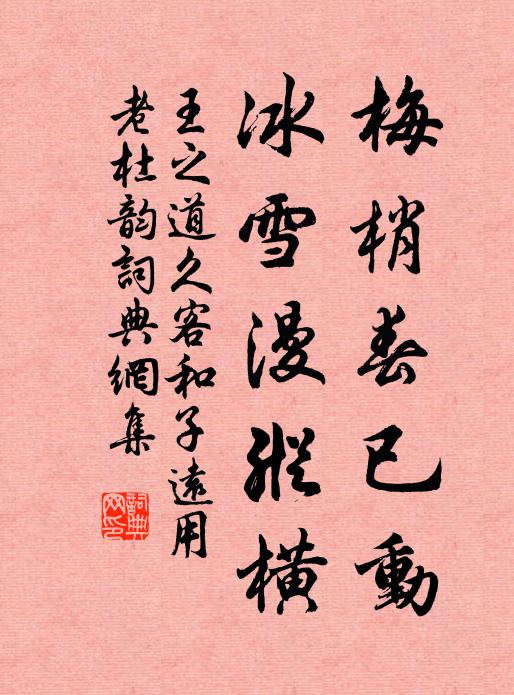 梅梢春已動
冰雪漫縱橫
王之道久客和子遠用
老杜韵詞典網集
詞典網印